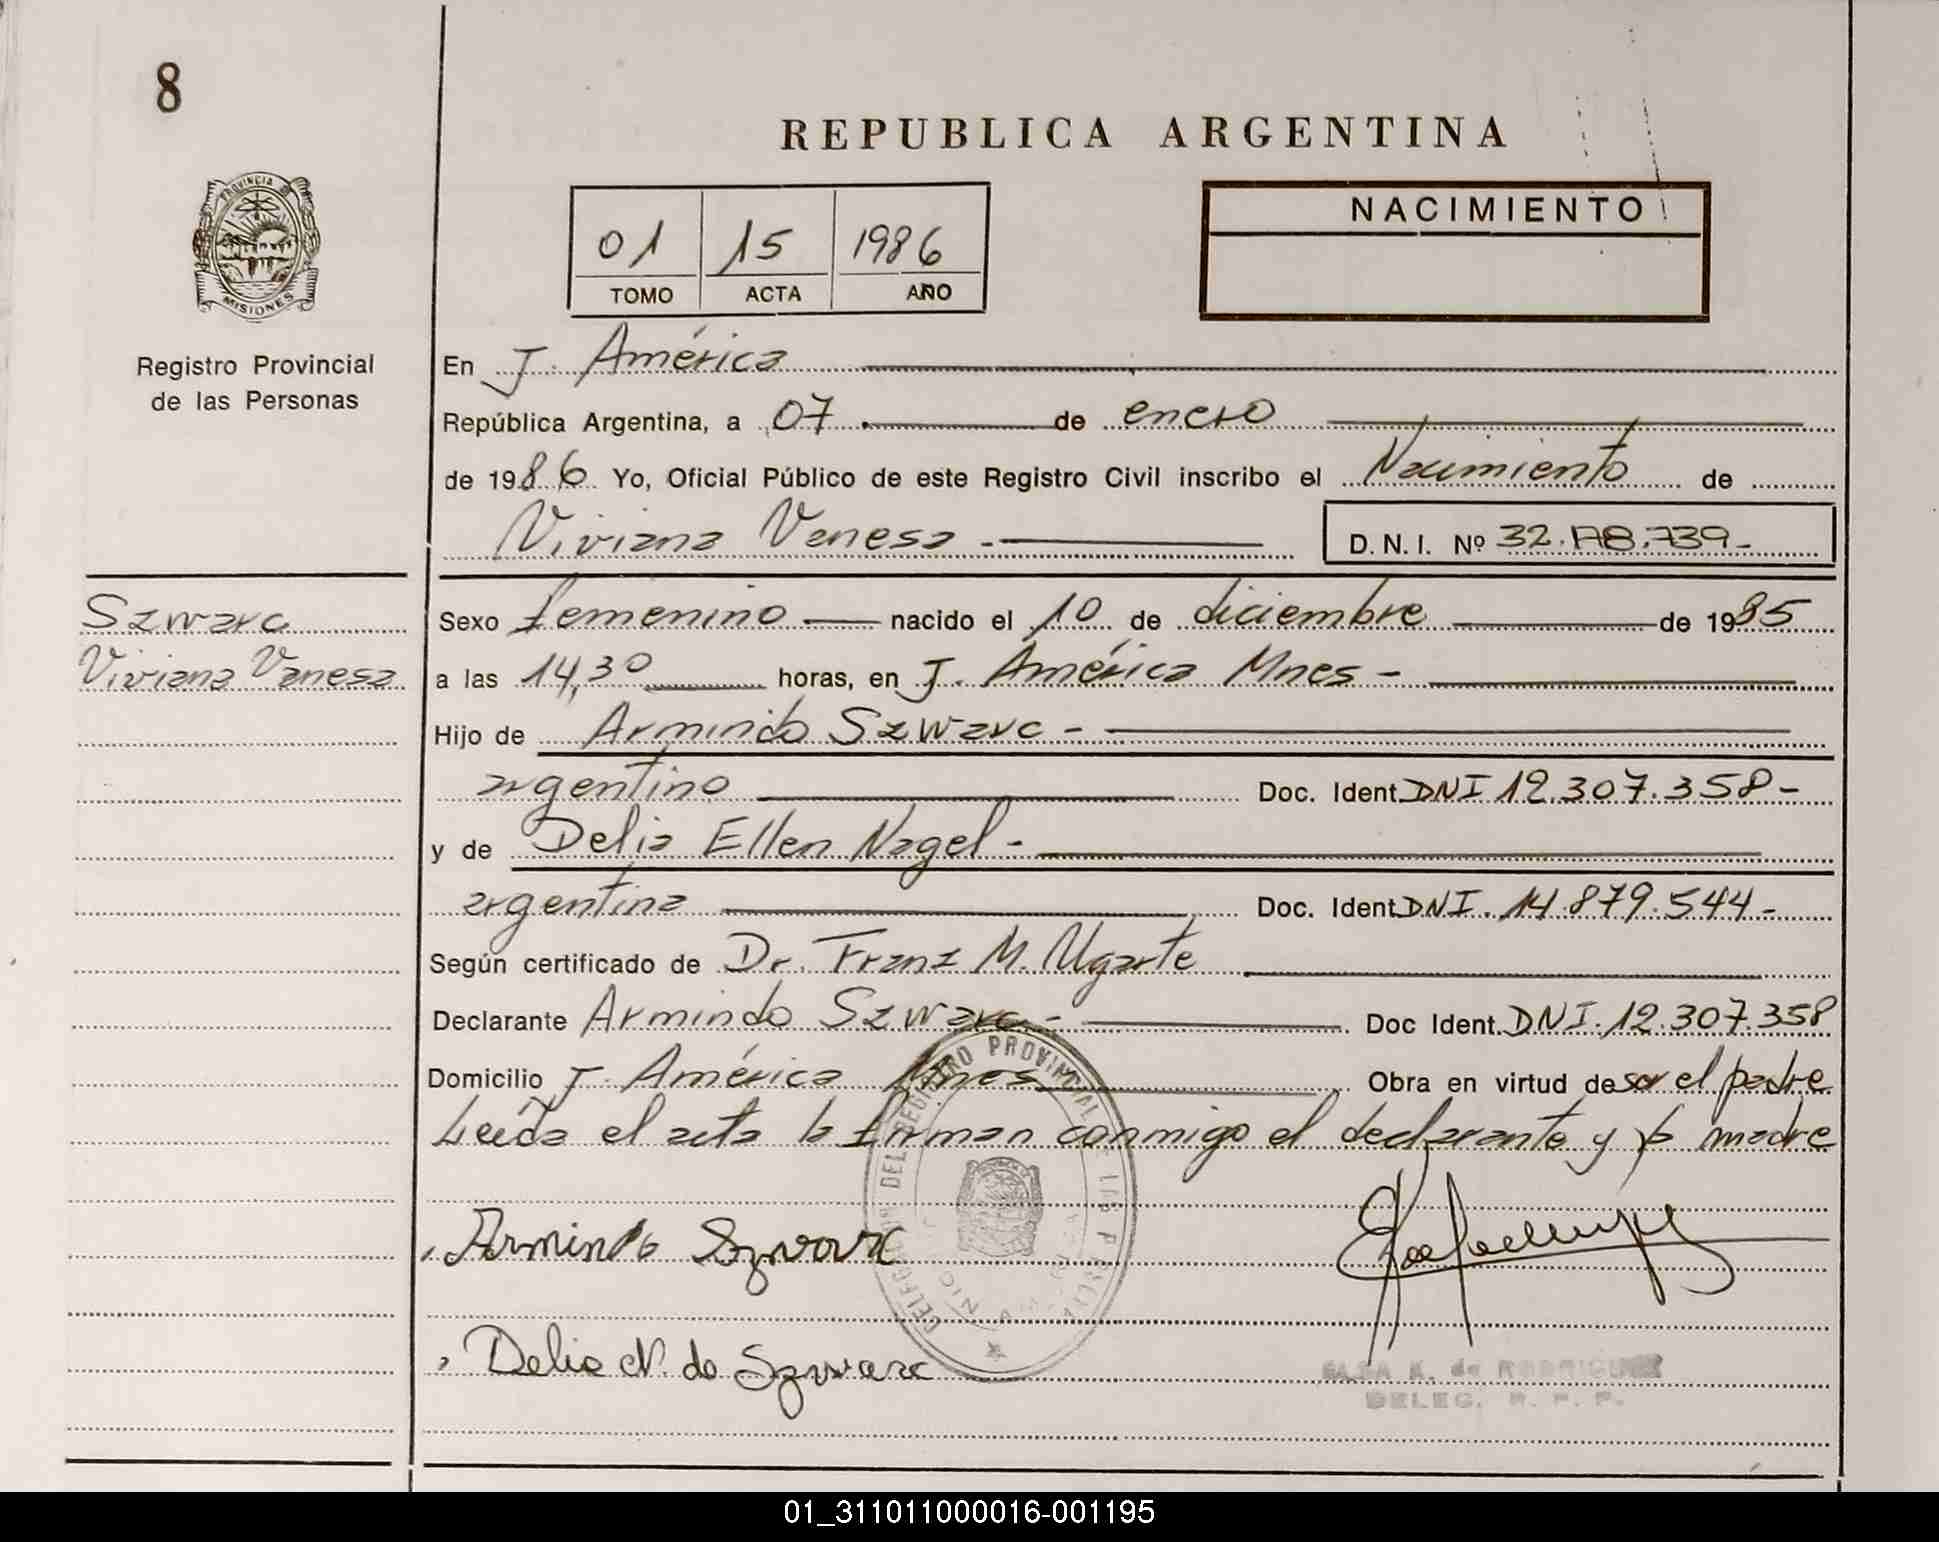 8
REPUBLICA ARGENTINA
PROVINCIA DE
MISIONES
Registro Provincial
de las Personas
01 15 1986
TOMO ACTA AÑO
NACIMIENTO
En J. América
República Argentina, a 07 de enero
de 1986 Yo, Oficial Público de este Registro Civil inscribo el Nacimiento de
Viviana Vanesa - D.N.I. Nº 32.178.739-
Szwarc
Viviana Vanesa
Sexo femenino nacido el 10 de diciembre de 1985
a las 14,30 horas, en J. América Mnes -
Hijo de Armindo Szwarc -
argentino Doc. Ident. DNI 12.307.358-
y de Delia Ellen Nagel -
argentina Doc. Ident. DNI. 14.879.544-
Según certificado de Dr. Franz M. Ugarte
Declarante Armindo Szwarc - Doc Ident. DNI. 12.307.358
Domicilio J. América Mnes Obra en virtud de ser el padre
Leída el acta la firman conmigo el declarante y la madre
Armindo Szwarc
Delia N. de Szwarc
DEL REGISTRO PROVINCIAL DE LAS
ELSA K. de RODRIGUEZ
DELEG. R. P. P.
01_311011000016-001195